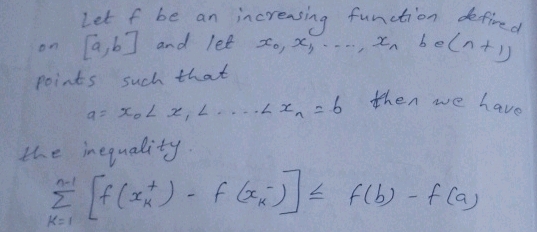 Let f be an increasing function defined
on [a,b] and let x₀, x₁, ...., xₙ be (n+1)
points such that
a = x₀ < x₁ < .... < xₙ = b then we have
the inequality.
∑_{K=1}^{n-1} [f(x_K^+) - f(x_K^-)] ≤ f(b) - f(a)